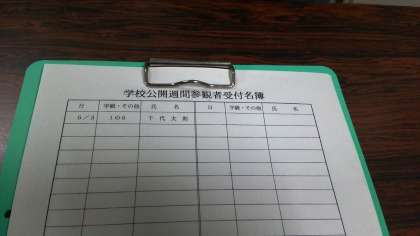 学校公開週間参観者受付名簿
日 学級・その他 氏 名 日 学級・その他 氏 名
6/3 106 千代太郎